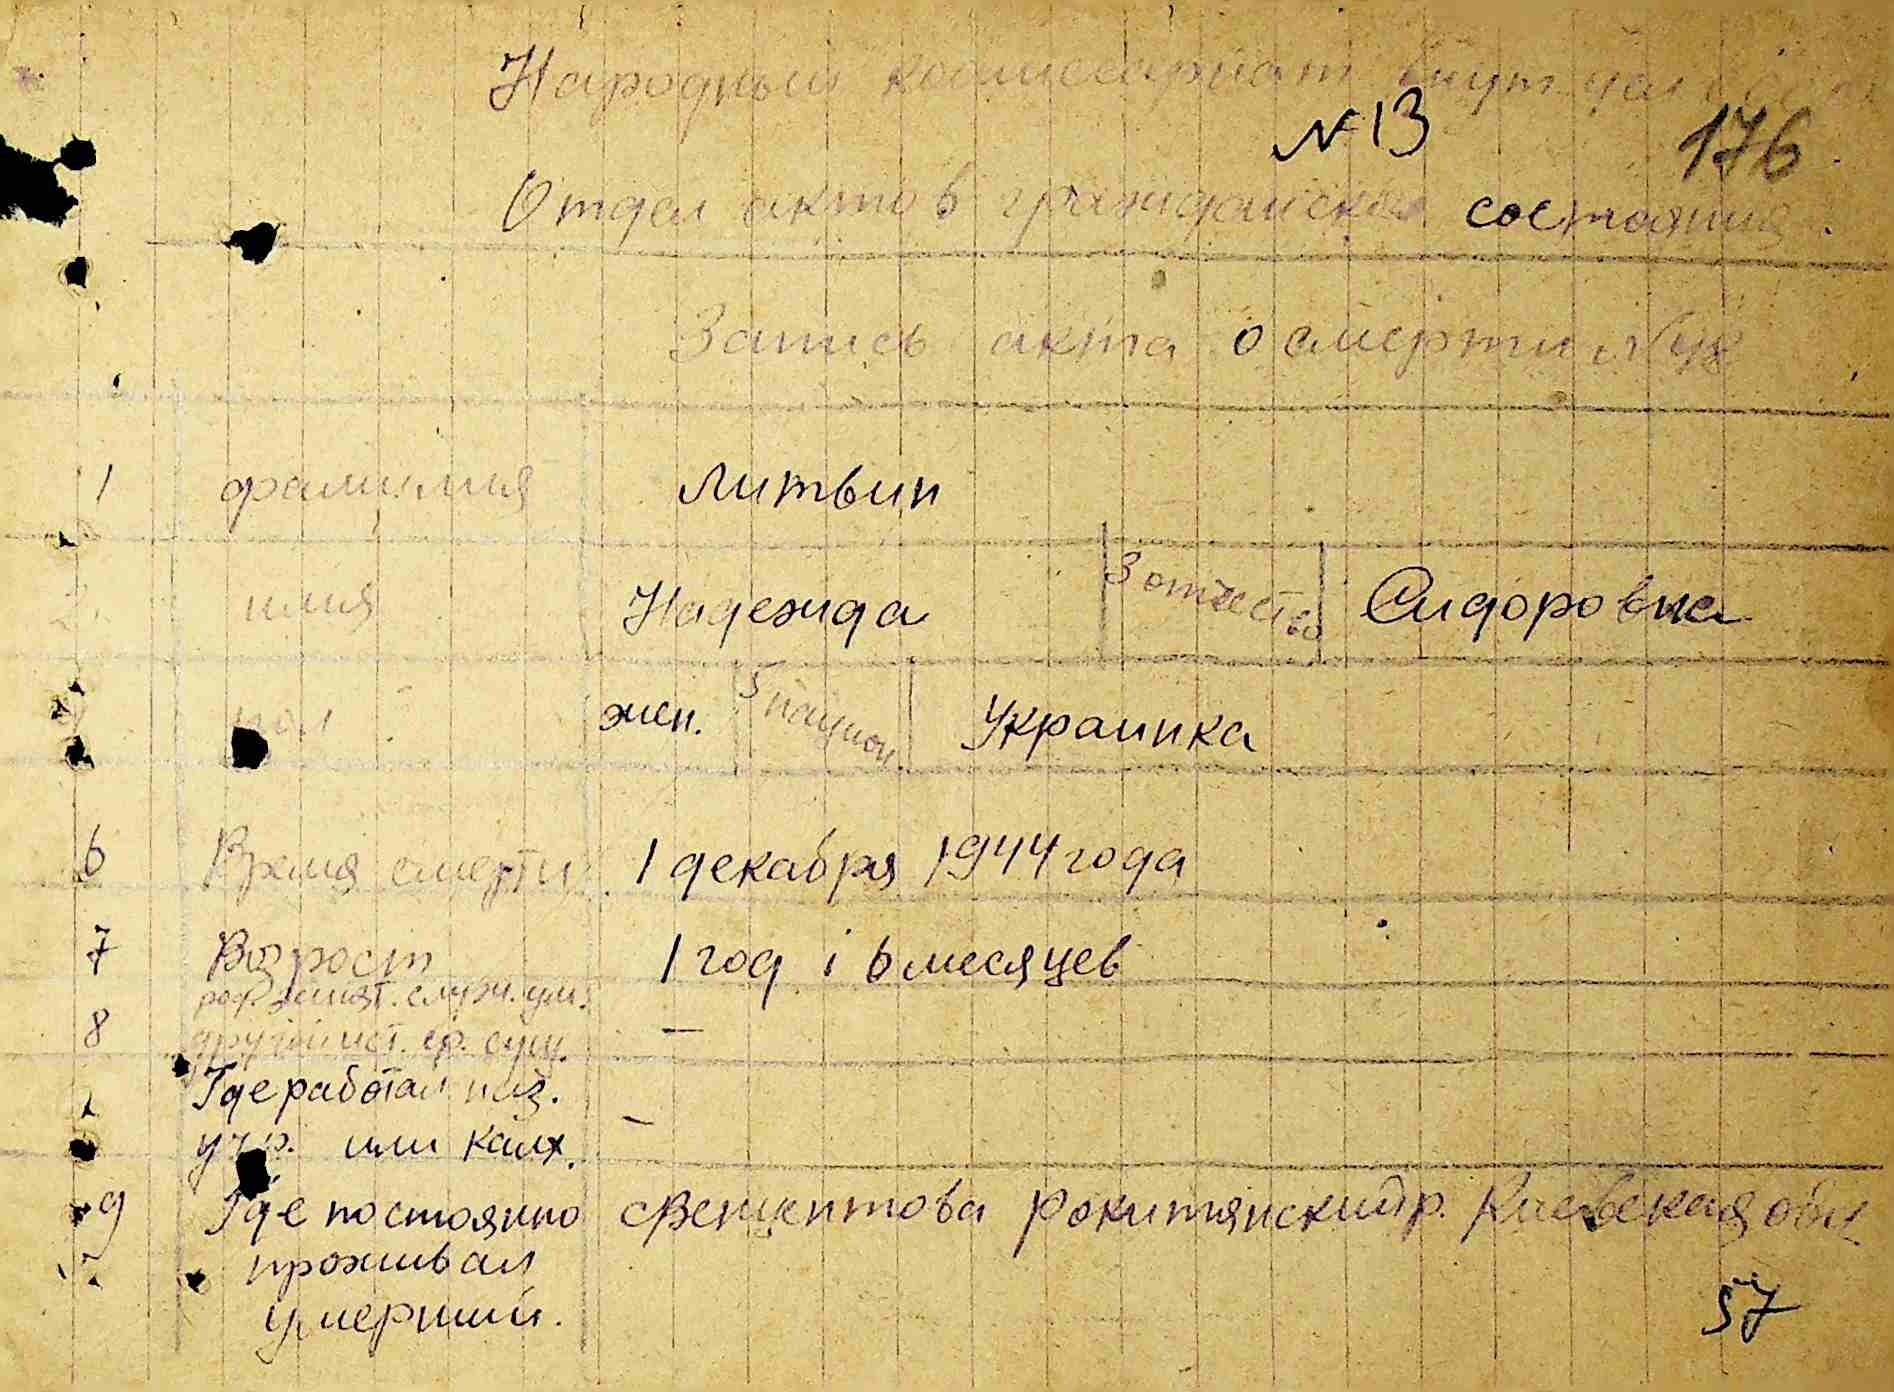 Народный комиссариат внут.
№13
176
Отдел актов гражданског состояния.
Запись акта о смерти №48
1 фамилия Литвин
2. имия Надежда 3 отчество Сидоровна
пол жен. 5 национ. Украинка
6 Время смерти 1 декабря 1944 года
7 Возрост 1 год і 6 месяцев
8 служ.
другой ист. ср. сущ. —
Где работал наз. –
учр. или колх.
9 Где постоянно Рокитянский р. Киевская обл
проживал
умерший.
57